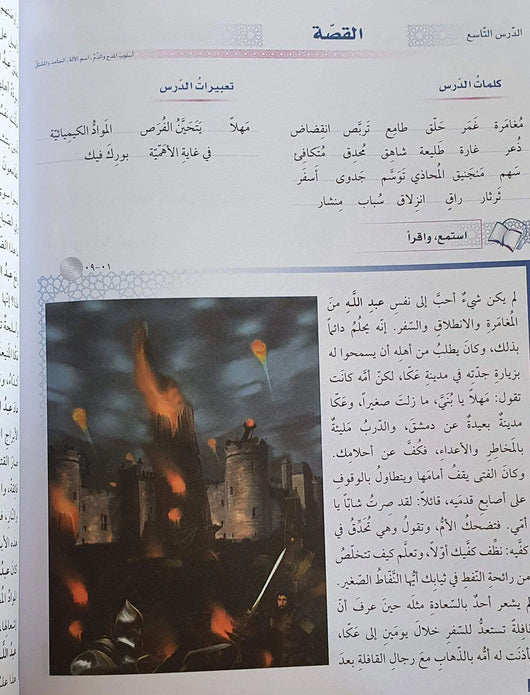 الدّرس التّاسع
القصّة
أسلوب المدح والذّم، اسم الآلة، الجامد والمشتقّ
كلمات الدّرس
مُغامَرة غَمَر حَلّق طامِع تَربّص انقِضاض
ذُعر غارة طَليعة شاهق مُحدِق مُتكافِئ
سَهم مَنجَنيق المُحاذي تَوَسَّم جَدوى أسفَر
ثَرثار راقٍ انزِلاق سُباب مِنشار
تعبيرات الدّرس
مَهلاً يَتَحَيَّنُ الفُرَص المَوادُّ الكيميائيّة
في غايةِ الأهمّيّة بورِكَ فيك
استمع، واقرأ
٠١-٠٩
لم يكن شيءٌ أحبَّ إلى نفسِ عبدِ اللَّهِ مِنَ
المُغامرةِ والانطلاقِ والسّفرِ. إنّه يحلُمُ دائماً
بذلك، وكانَ يطلبُ من أهله أن يسمحوا له
بزيارةِ جدّتِه في مدينةِ عَكّا، لكنَّ أمَّه كانَت
تقول: مَهلاً يا بُنَيَّ، ما زلتَ صغيراً، وعَكّا
مدينةٌ بعيدةٌ عن دمشقَ، والدّربُ مَليئةٌ
بالمَخاطرِ والأعداء، فكُفَّ عن أحلامِك.
وكانَ الفتى يقِفُ أمامَها ويتطاولُ بالوقوفِ
على أصابعِ قدمَيه، قائلاً: لقد صرتُ شابّاً يا
أمّي. فتضحكُ الأمُّ، وتقولُ وهي تُحَدِّقُ في
كفَّيه: نظِّف كفَّيك أوّلاً، وتعلَّم كيف تتخلّصُ
من رائحةِ النّفط في ثيابِك أيُّها النَّفّاطُ الصّغير.
لم يشعر أحدٌ بالسّعادةِ مثلَه حينَ عرفَ أنّ
قافلةً تستعدُّ للسّفرِ خلالَ يومَينِ إلى عَكّا،
أذنَت له أمُّه بالذّهابِ معَ رجالِ القافلةِ بعدَ